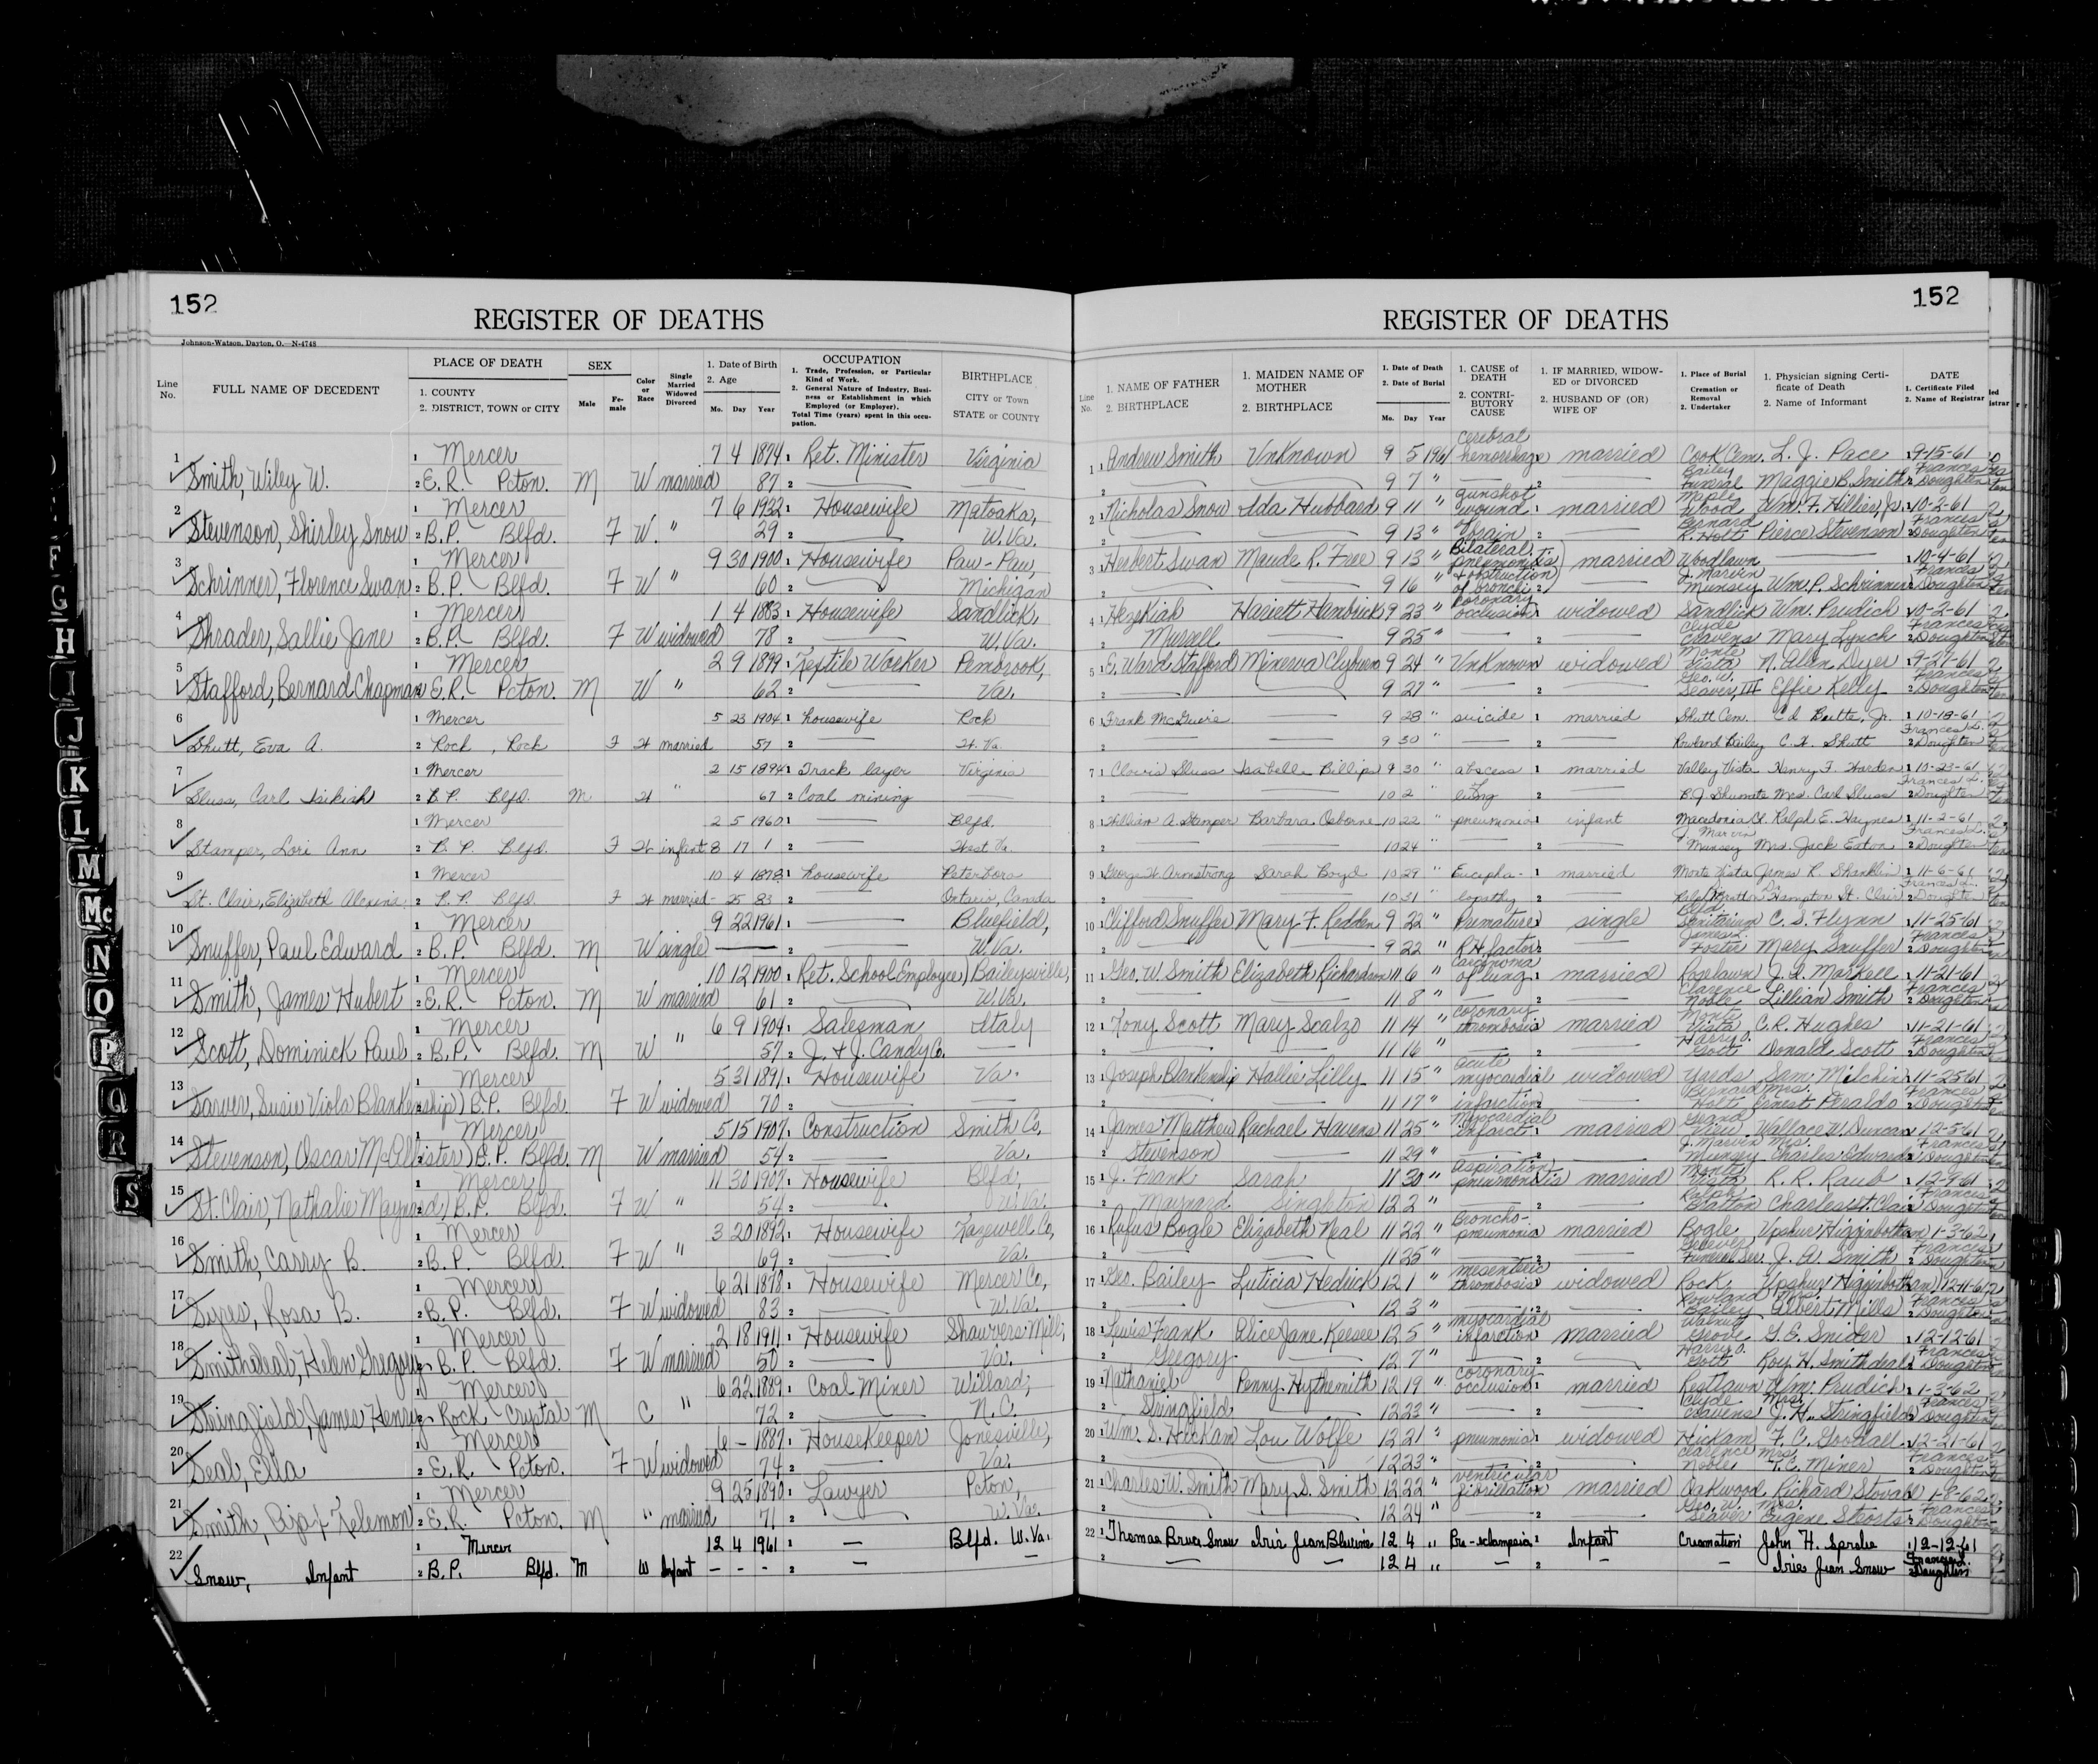 152
REGISTER OF DEATHS
Johnson-Watson, Dayton, O.—N-4748
Line No.
FULL NAME OF DECEDENT
PLACE OF DEATH
1. COUNTY
2. DISTRICT, TOWN or CITY
SEX
Male
Fe-male
Color or Race
Single Married Widowed Divorced
1. Date of Birth
2. Age
Mo. Day Year
OCCUPATION
1. Trade, Profession, or Particular Kind of Work.
2. General Nature of Industry, Busi-ness or Establishment in which Employed (or Employer).
Total Time (years) spent in this occu-pation.
BIRTHPLACE
CITY or Town
STATE or COUNTY
1 1 Mercer 7 4 1874 1 Ret. Minister Virginia
Smith, Wiley W. 2 E.R. Pcton. M W married 87 2
2 1 Mercer 7 6 1932 1 Housewife Matoaka,
Stevenson, Shirley Snow 2 B.P. Blfd. F W. " 29 2 W.Va.
3 1 Mercer 9 30 1900 1 Housewife Paw-Paw,
Schrinner, Florence Swan 2 B.P. Blfd. F W " 60 2 Michigan
4 1 Mercer 1 4 1883 1 Housewife Sandlick,
Shrader, Sallie Jane 2 B.P. Blfd. F W widowed 78 2 W.Va.
5 1 Mercer 2 9 1899 1 Textile Worker Pembrook,
Stafford, Bernard Chapman 2 E.R. Pcton. M W " 62 2 Va.
6 1 Mercer 5 23 1904 1 housewife Rock
Shutt, Eva A. 2 Rock, Rock F W married 57 2 W. Va.
7 1 Mercer 2 15 1894 1 Track layer Virginia
Sluss, Carl 2 B.P. Blfd. M W " 67 2 Coal mining
8 1 Mercer 2 5 1960 1 Blfd.
Stamper, Lori Ann 2 B.P. Blfd. F W infant 8 17 1 2 West Va.
9 1 Mercer 10 4 1878 1 housewife Peterboro
St. Clair, Elizabeth 2 B.P. Blfd. F W married - 25 83 2 Ontario, Canada
10 1 Mercer 9 22 1961 1 Bluefield,
Snuffer, Paul Edward 2 B.P. Blfd. M W single 2 W.Va.
11 1 Mercer 10 12 1900 1 Ret. School Employee Baileysville,
Smith, James Hubert 2 E.R. Pcton. M W married 61 2 W.Va.
12 1 Mercer 6 9 1904 1 Salesman Italy
Scott, Dominick Paul 2 B.P. Blfd. M W " 57 2 J. & J. Candy Co.
13 1 Mercer 5 31 1891 1 Housewife Va.
Sarver, Susie Viola Blankenship 2 B.P. Blfd. F W widowed 70 2
14 1 Mercer 5 15 1907 1 Construction Smith Co,
Stevenson, Oscar McAllister 2 B.P. Blfd. M W married 54 2 Va.
15 1 Mercer 11 30 1907 1 Housewife Blfd,
St. Clair, Nathalie Maynard 2 B.P. Blfd. F W " 54 2 W.Va.
16 1 Mercer 3 20 1892 1 Housewife Tazewell Co,
Smith, Carry B. 2 B.P. Blfd. F W " 69 2 Va.
17 1 Mercer 6 21 1878 1 Housewife Mercer Co,
Syres, Rosa B. 2 B.P. Blfd. F W widowed 83 2 W.Va.
18 1 Mercer 2 18 1911 1 Housewife Shawvers Mill,
Smithdeal, Helen Gregory 2 B.P. Blfd. F W married 50 2 Va.
19 1 Mercer 6 22 1889 1 Coal Miner Willard,
Stringfield, James Henry 2 Rock Crystal M C " 72 2 N.C.
20 1 Mercer 6 - 1887 1 Housekeeper Jonesville,
Seal, Ella 2 E.R. Pcton. F W widowed 74 2 Va.
21 1 Mercer 9 25 1890 1 Lawyer Pcton,
Smith, 2 E.R. Pcton. M " married 71 2 W.Va.
22 1 Mercer 12 4 1961 1 — Blfd. W.Va.
Snow, Infant 2 B.P. Blfd. M W Infant - - - 2 —
G
H
I
J
K
L
M
Mc
N
O
P
Q
R
S
152
REGISTER OF DEATHS
Line No.
1. NAME OF FATHER
2. BIRTHPLACE
1. MAIDEN NAME OF MOTHER
2. BIRTHPLACE
1. Date of Death
2. Date of Burial
Mo. Day Year
1. CAUSE of DEATH
2. CONTRI-BUTORY CAUSE
1. IF MARRIED, WIDOW-ED or DIVORCED
2. HUSBAND OF (OR) WIFE OF
1. Place of Burial
Cremation or Removal
2. Undertaker
1. Physician signing Certi-ficate of Death
2. Name of Informant
DATE
1. Certificate Filed
2. Name of Registrar
1 1 Andrew Smith Unknown 9 5 1961 cerebral hemorrhage married Cook Cem. L. J. Pace 9-15-61
2 9 7 " Bailey Funeral Maggie B. Smith Frances Doughton
2 1 Nicholas Snow Ida Hubbard 9 11 " gunshot wound married Maple Wood Wm. F. Hillier, Jr. 10-2-61
2 9 13 " of brain Bernard R. Holt Pierce Stevenson Frances Doughton
3 1 Herbert Swan Maude R. Free 9 13 " Bilateral pneumonitis married Woodlawn 10-4-61
2 9 16 " & obstruction of bronchi J. Marvin Munsey Wm. P. Schrinner Frances Doughton
4 1 Hezkiah Hariett Hambrick 9 23 " coronary occlusion widowed Sandlick Wm. Prudich 10-2-61
2 Murrell 9 25 " Clyde Cravens Mary Lynch Frances Doughton
5 1 E. Ward Stafford Minerva Clyburn 9 24 " Unknown widowed Monte Vista N. Allen Dyer 9-27-61
2 9 27 " Geo. W. Seaver, III Effie Kelly Frances Doughton
6 1 Frank McGuire 9 28 " suicide married Shutt Cem. 10-18-61
2 9 30 " Rowland Bailey C. W. Shutt Frances L. Doughton
7 1 Clovis Sluss Isabelle Billips 9 30 " abscess married Valley Vista Henry F. Warden 10-23-61
2 10 2 " of lung B.J. Shumate Mrs. Carl Sluss Frances L. Doughton
8 1 William A. Stamper Barbara Osborne 10 22 " pneumonia infant Macedonia Ch. Ralph E. Haynes 11-2-61
2 10 24 " J. Marvin Munsey Mrs. Jack Eaton Frances L. Doughton
9 1 George W. Armstrong Sarah Boyd 10 29 " Encepha- married Monte Vista James R. Shanklin 11-6-61
2 10 31 lopathy Hampton St. Clair Frances L. Doughton
10 1 Clifford Snuffer Mary F. Redden 9 22 " Premature single Blfd. Sanitarium C. S. Flynn 11-25-61
2 9 22 " R.H. factor James L. Foster Mary Snuffer Frances Doughton
11 1 Geo. W. Smith Elizabeth Richardson 11 6 " carcinoma of lung married Roselawn J. I. Markell 11-21-61
2 11 8 " Clarence Noble Lillian Smith Frances Doughton
12 1 Tony Scott Mary Scalzo 11 14 " coronary thrombosis married Monte Vista C.R. Hughes 11-21-61
2 11 16 " Harry O. Gott Donald Scott Frances Doughton
13 1 Joseph Blankenship Hallie Lilly 11 15 " acute myocardial widowed Yards Sam Milchin 11-25-61
2 11 17 " infarction Bernard Holt Mrs. Ernest Peraldo Frances Doughton
14 1 James Matthew Rachael Havens 11 25 " Myocardial infarct married Grand View Wallace W. Duncan 12-5-61
2 Stevenson 11 29 " J. Marvin Munsey Mrs. Charles Edwards Frances Doughton
15 1 J. Frank Sarah 11 30 " aspiration pneumonitis married Monte Vista R. R. Raub 12-9-61
2 Maynard Singleton 12 2 " Ralph Bratton Charles St. Clair Frances Doughton
16 1 Rufus Bogle Elizabeth Neal 11 22 " Broncho-pneumonia married Bogle Upshur Higginbotham 1-3-62
2 11 25 " Greever Funeral Ser. J. A. Smith Frances Doughton
17 1 Geo. Bailey Luticia Hedrick 12 1 " mesenteric thrombosis widowed Rock Upshur Higginbotham 12-11-61
2 12 3 " Rowland Bailey Mrs. Albert Mills Frances Doughton
18 1 Lewis Frank Alice Jane Keesee 12 5 " myocardial infarction married Walnut Grove G. E. Snider 12-12-61
2 Gregory 12 7 " Harry O. Gott Roy H. Smithdeal Frances Doughton
19 1 Nathaniel Penny Hythemith 12 19 " coronary occlusion married Restlawn Wm. Prudich 1-3-62
2 Stringfield 12 23 " Clyde Cravens Mrs. J. H. Stringfield Frances Doughton
20 1 Wm. S. Hickam Lou Wolfe 12 21 " pneumonia widowed Hickam F. C. Goodall 12-21-61
2 12 23 " Clarence Noble Mrs. T. C. Miner Frances Doughton
21 1 Charles W. Smith Mary S. Smith 12 22 " ventricular fibrillation married Oakwood Richard Stovall 1-8-62
2 12 24 " Geo. W. Seaver Mrs. Eugene Frances Doughton
22 1 Thomas Bruce Snow Iris Jean Blevins 12 4 " Pre-eclampsia Infant Cremation John H. Sproles 12-12-61
2 — — 12 4 " — — — Iris Jean Snow Frances L. Doughton